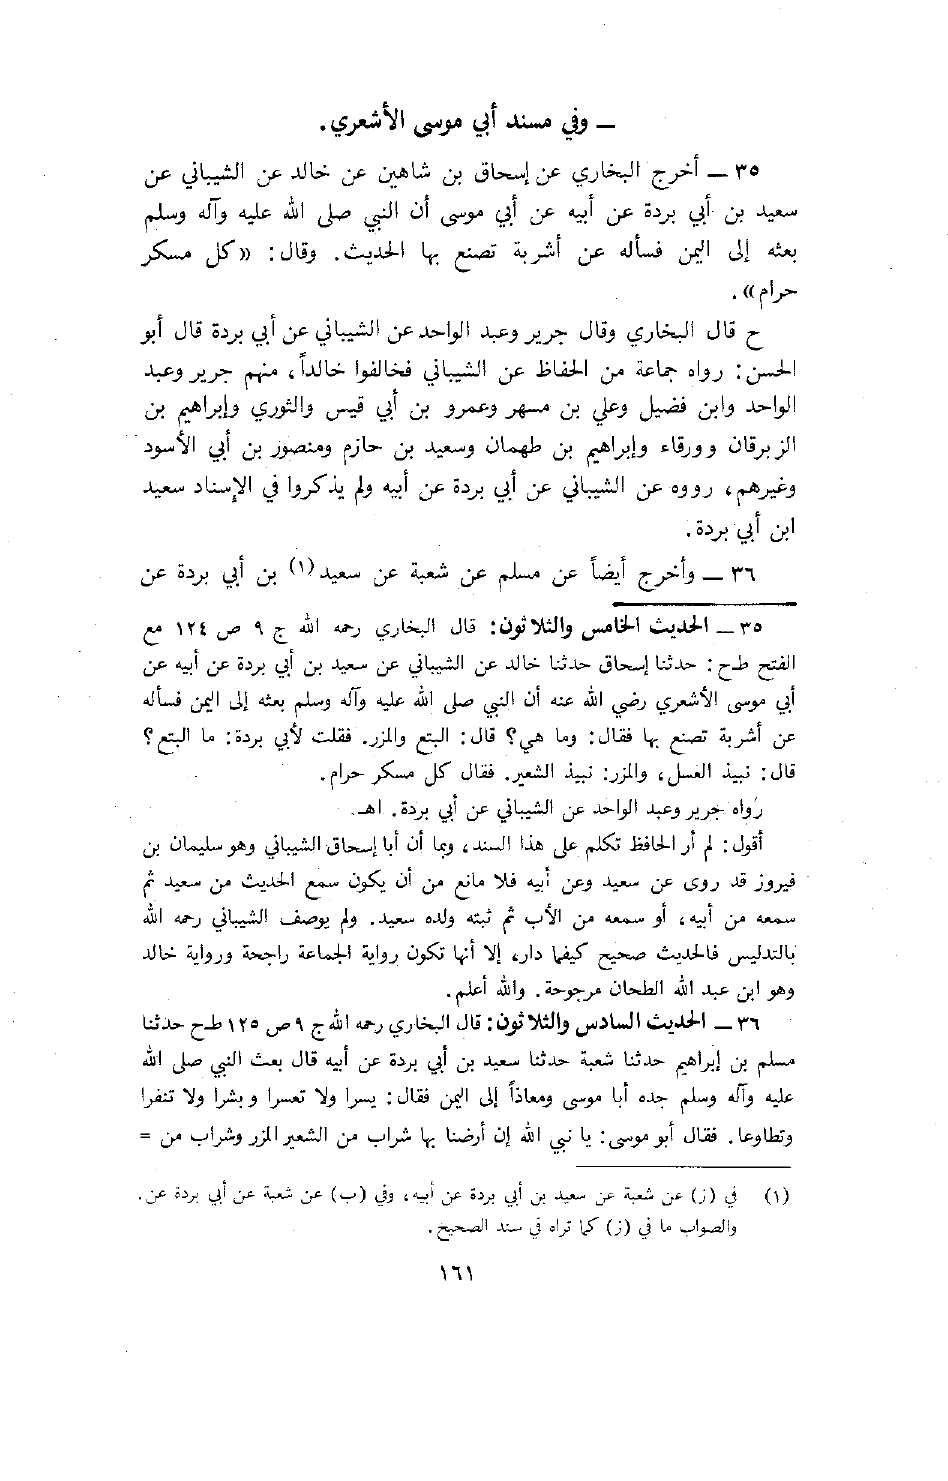 — وفي مسند أبي موسى الأشعري.
٣٥ — أخرج البخاري عن إسحاق بن شاهين عن خالد عن الشيباني عن
سعيد بن أبي بردة عن أبيه عن أبي موسى أن النبي صلى الله عليه وآله وسلم
بعثه إلى اليمن فسأله عن أشربة تصنع بها الحديث. وقال: «كل مسكر
حرام».
ح قال البخاري وقال جرير وعبد الواحد عن الشيباني عن أبي بردة قال أبو
الحسن: رواه جماعة من الحفاظ عن الشيباني فخالفوا خالداً، منهم جرير وعبد
الواحد وابن فضيل وعلي بن مسهر وعمرو بن أبي قيس والثوري وإبراهيم بن
الزبرقان وورقاء وإبراهيم بن طهمان وسعيد بن حازم ومنصور بن أبي الأسود
وغيرهم، رووه عن الشيباني عن أبي بردة عن أبيه ولم يذكروا في الإسناد سعيد
ابن أبي بردة.
٣٦ — وأخرج أيضاً عن مسلم عن شعبة عن سعيد(١) بن أبي بردة عن
٣٥ — الحديث الخامس والثلاثون: قال البخاري رحمه الله ج ٩ ص ١٢٤ مع
الفتح ط ح: حدثنا إسحاق حدثنا خالد عن الشيباني عن سعيد بن أبي بردة عن أبيه عن
أبي موسى الأشعري رضي الله عنه أن النبي صلى الله عليه وآله وسلم بعثه إلى اليمن فسأله
عن أشربة تصنع بها فقال: وما هي؟ قال: البتع والمزر. فقلت لأبي بردة: ما البتع؟
قال: نبيذ العسل، والمزر: نبيذ الشعير. فقال كل مسكر حرام.
رواه جرير وعبد الواحد عن الشيباني عن أبي بردة. اهـ.
أقول: لم أر الحافظ تكلم على هذا السند، وبما أن أبا إسحاق الشيباني وهو سليمان بن
فيروز قد روى عن سعيد وعن أبيه فلا مانع من أن يكون سمع الحديث من سعيد ثم
سمعه من أبيه، أو سمعه من الأب ثم ثبته ولده سعيد. ولم يوصف الشيباني رحمه الله
بالتدليس فالحديث صحيح كيفما دار، إلا أنها تكون رواية الجماعة راجحة ورواية خالد
وهو ابن عبد الله الطحان مرجوحة. والله أعلم.
٣٦ — الحديث السادس والثلاثون: قال البخاري رحمه الله ج ٩ ص ١٢٥ ط ح حدثنا
مسلم بن إبراهيم حدثنا شعبة حدثنا سعيد بن أبي بردة عن أبيه قال بعث النبي صلى الله
عليه وآله وسلم جده أبا موسى ومعاذاً إلى اليمن فقال: يسرا ولا تعسرا وبشرا ولا تنفرا
وتطاوعا. فقال أبو موسى: يا نبي الله إن أرضنا بها شراب من الشعير المزر وشراب من =
(١) في (ز) عن شعبة عن سعيد بن أبي بردة عن أبيه، وفي (ب) عن شعبة عن أبي بردة عن.
والصواب ما في (ز) كما تراه في سند الصحيح.
١٦١